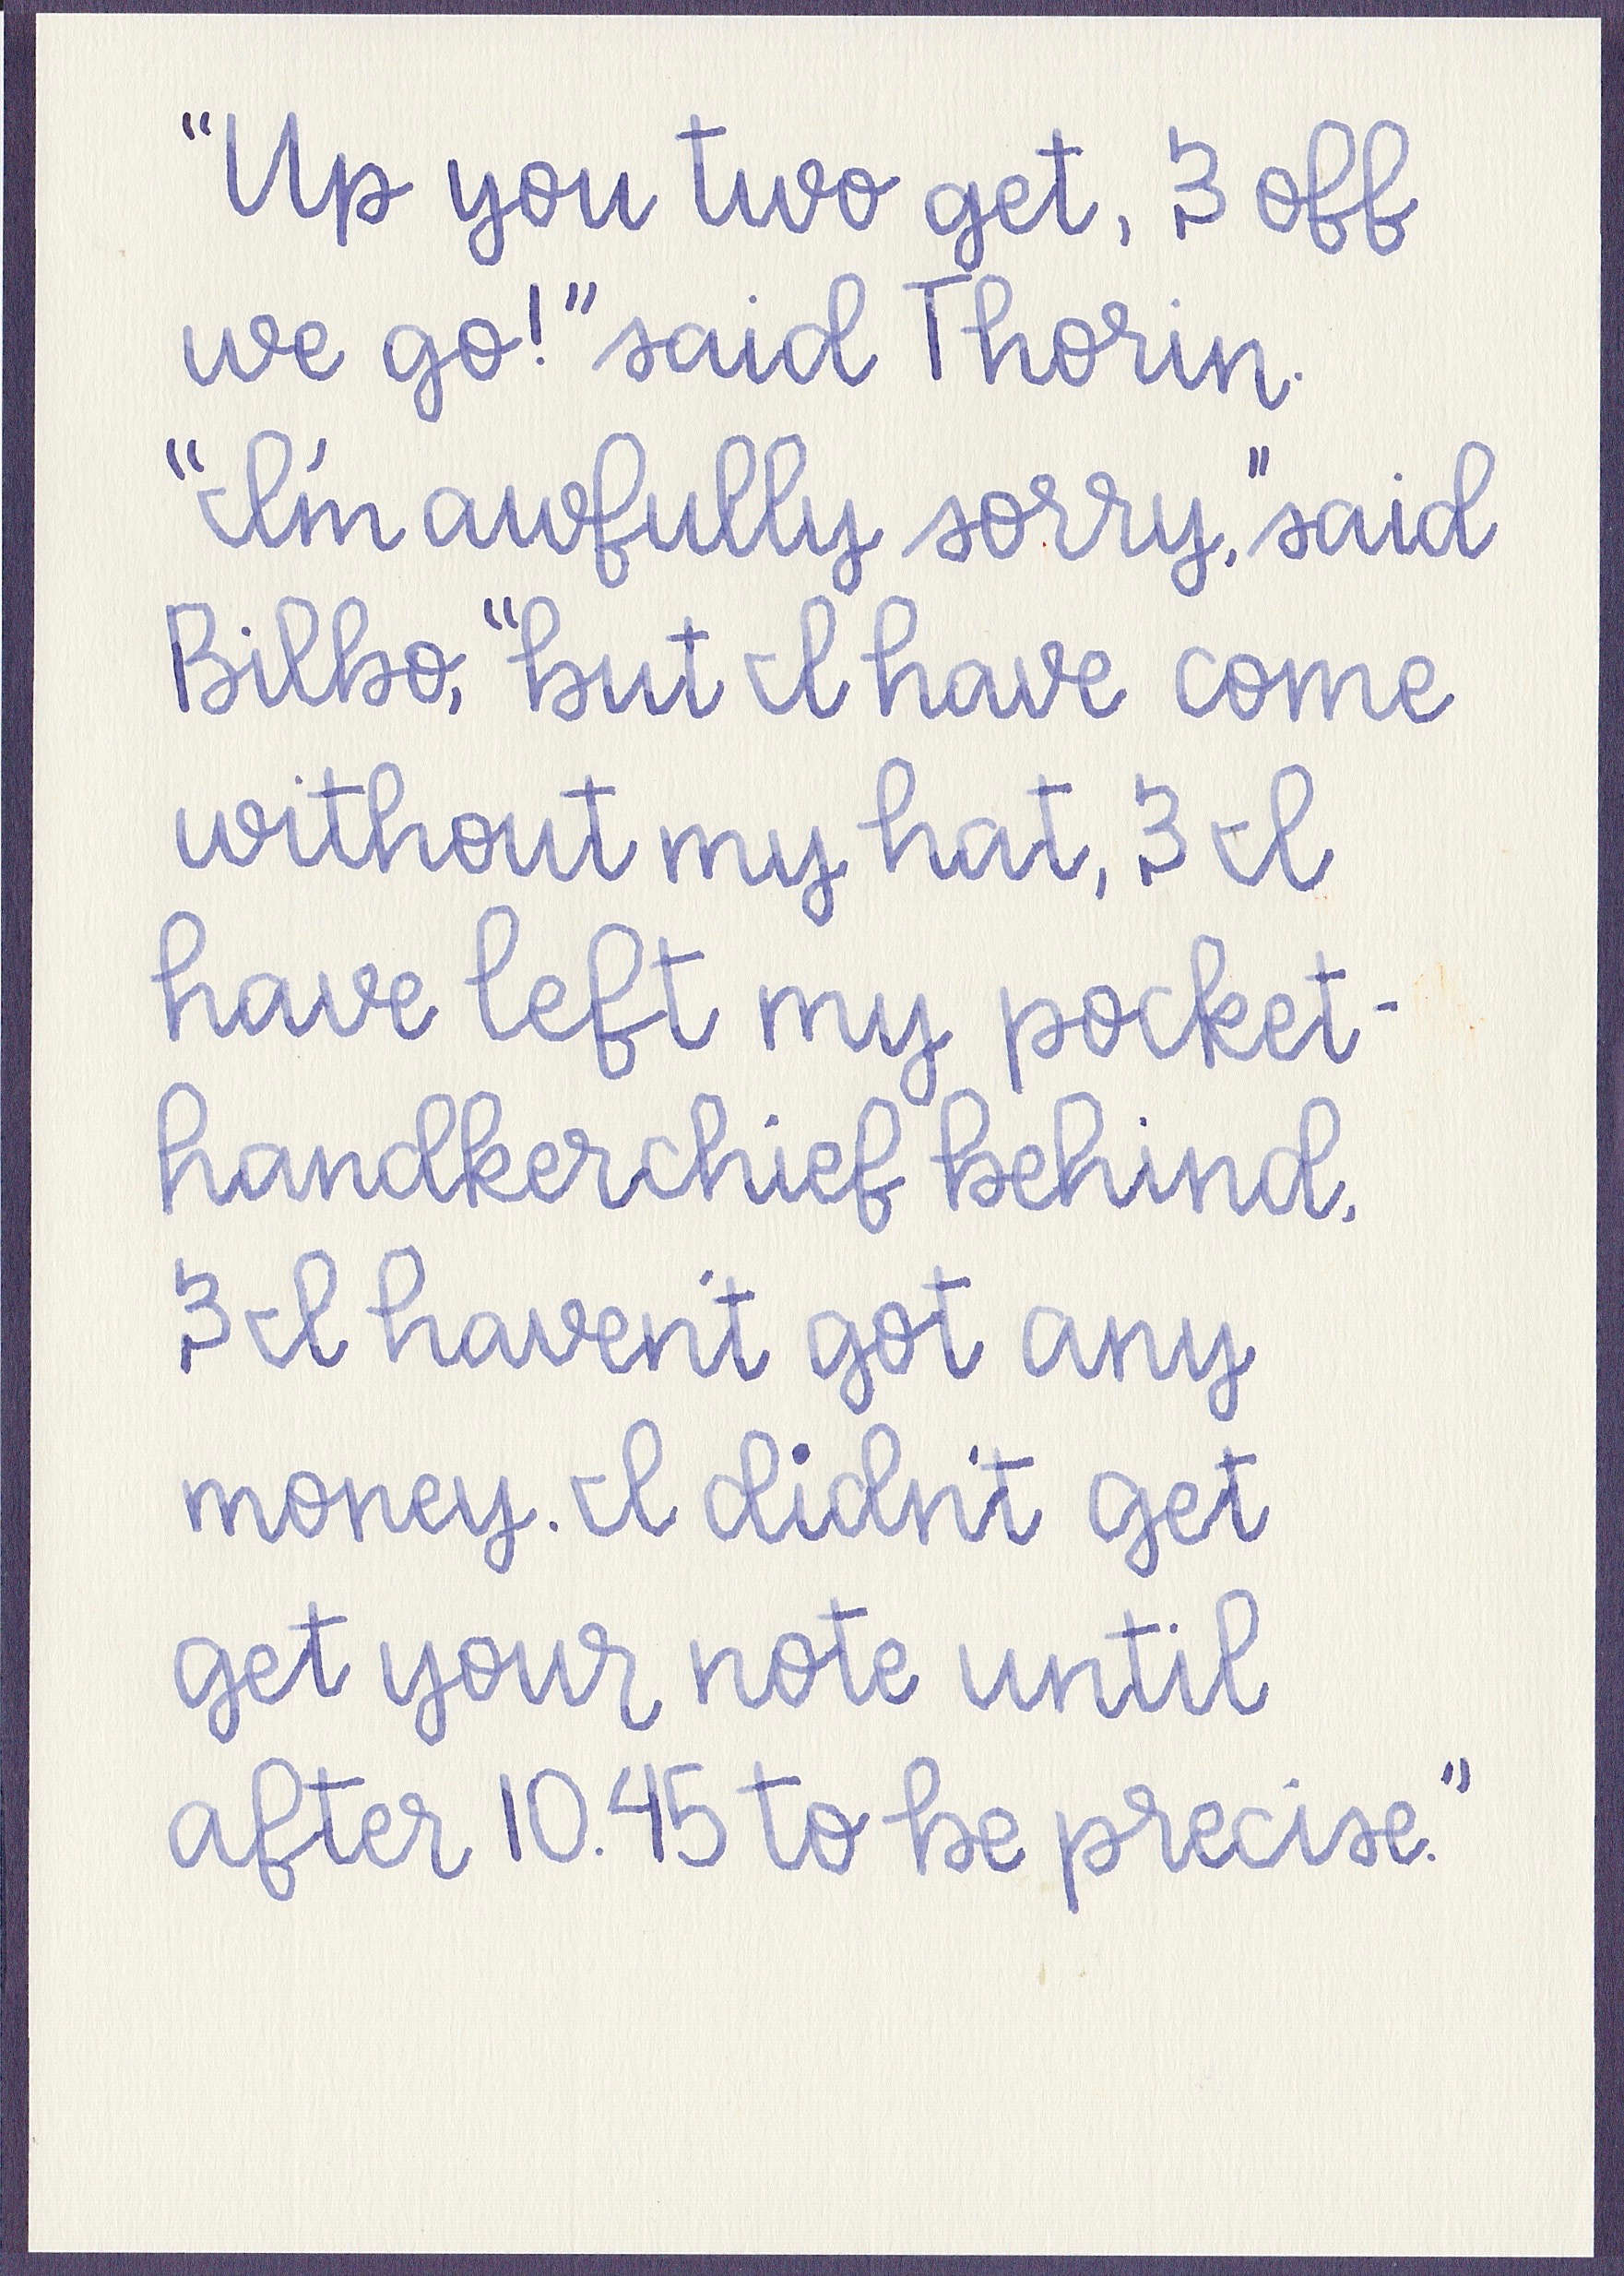 "Up you two get, & off
we go!" said Thorin.
"I'm awfully sorry," said
Bilbo, "but I have come
without my hat, & I
have left my pocket-
handkerchief behind,
& I haven't got any
money. I didn't get
get your note until
after 10.45 to be precise."